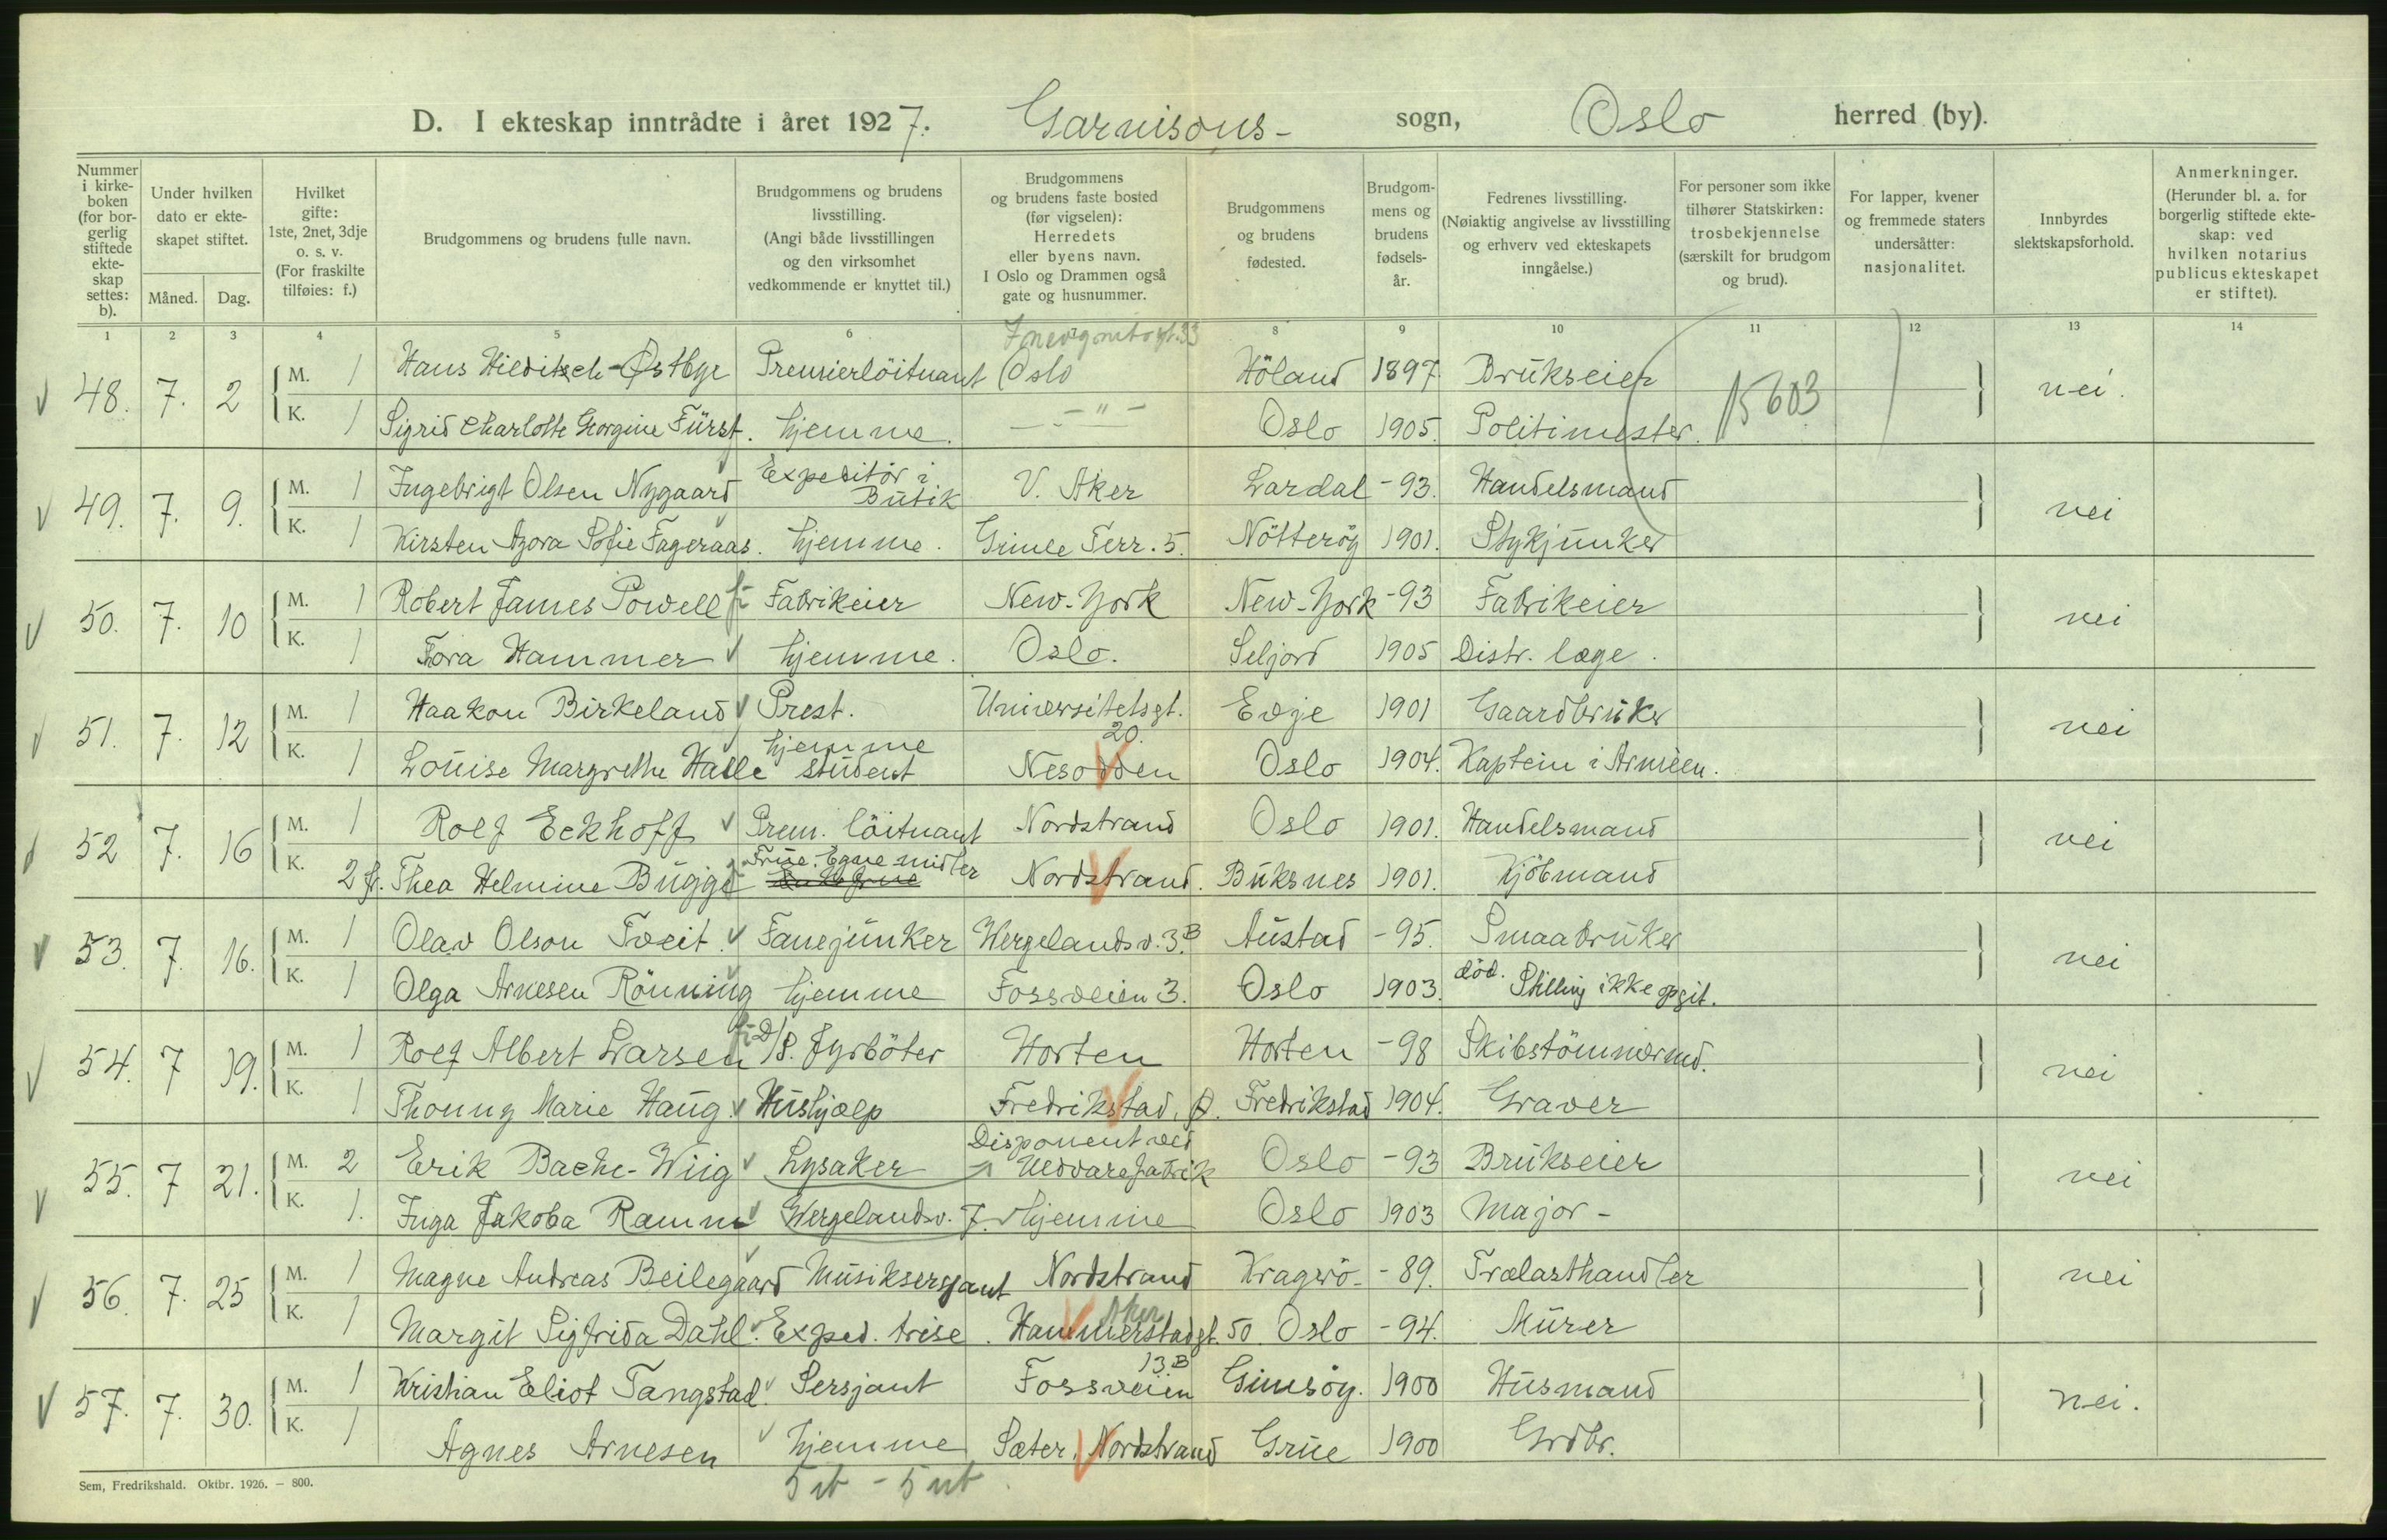 D. I ekteskap inntrådte i året 1927. Garnisons- sogn, Oslo herred (by).
Nummer i kirke-boken (for bor-gerlig stiftede ekte-skap settes: b).
Under hvilken dato er ekte-skapet stiftet.
Måned. Dag.
Hvilket gifte: 1ste, 2net, 3dje o. s. v. (For fraskilte tilføies: f.)
Brudgommens og brudens fulle navn.
Brudgommens og brudens livsstilling. (Angi både livsstillingen og den virksomhet vedkommende er knyttet til.)
Brudgommens og brudens faste bosted (før vigselen): Herredets eller byens navn. I Oslo og Drammen også gate og husnummer.
Brudgommens og brudens fødested.
Brudgom-mens og brudens fødsels-år.
Fedrenes livsstilling. (Nøiaktig angivelse av livsstilling og erhverv ved ekteskapets inngåelse.)
For personer som ikke tilhører Statskirken: trosbekjennelse (særskilt for brudgom og brud).
For lapper, kvener og fremmede staters undersåtter: nasjonalitet.
Innbyrdes slektskapsforhold.
Anmerkninger. (Herunder bl. a. for borgerlig stiftede ekte-skap: ved hvilken notarius publicus ekteskapet er stiftet).
1 2 3 4 5 6 8 9 10 11 12 13 14
48. 7. 2 M. 1 Hans Hilditsch-Østbye Premierlöitnant Oslo Höland 1897. Brukseier 15603 nei.
K. 1 Sigrid Charlotte Georgine Fürst. hjemme. - " - Oslo 1905. Politimester.
49. 7. 9. M. 1 Ingebrigt Olsen Nygaard Expeditör i Butik V. Aker Lardal -93. Handelsmand nei
K. 1 Kirsten Azora Sofie Fageraas. hjemme. Gimle Terr. 5. Nötteröy 1901. Stykjunker
50. 7. 10 M. 1 Robert James Powell Fabrikeier New-York New-York -93 Fabrikeier nei
K. 1 Tora Hammer hjemme. Oslo. Seljord 1905 Distr. læge.
51. 7. 12 M. 1 Haakon Birkeland Prest. Universitetsgt. 20. Evje 1901 Gaardbruker nei
K. 1 Louise Margrethe Halle hjemme student Nesodden Oslo 1904. Kaptein i Armeen.
52 7. 16 M. 1 Rolf Eckhoff Prem. löitnant Nordstrand Oslo 1901. Handelsmand nei
K. 2 f. Thea Helmine Bugge Frue. Egne midler Nordstrand. Buksnes 1901. Kjöbmand
53. 7. 16. M. 1 Olav Olson Tveit. Fanejunker Wergelandsv. 3.B Austad -95. Smaabruker nei
K. 1 Olga Arnesen Rönning hjemme Fossveien 3. Oslo 1903. död. Stilling ikke opgit.
54. 7 19. M. 1 Rolf Albert Larsen D/S. Fyrböter Horten Horten -98 Skibstömmermd. nei
K. 1 Thonny Marie Haug. Hushjælp Fredrikstad, Ø. Fredrikstad 1904. Graver
55. 7 21. M. 2 Erik Bache-Wiig Lysaker Disponent ved Uldvarefabrik Oslo -93 Brukseier nei
K. 1. Inga Jakoba Ramm Wergelandsv. 7. hjemme Oslo 1903 Major-
56. 7. 25 M. 1 Magne Andreas Beilegaard Musiksersjant Nordstrand Kragerö -89. Trælasthandler nei
K. 1 Margit Sigfrida Dahl. Exped. trise. Hammerstadgt. 50 Aker Oslo -94. Murer
57. 7. 30. M. 1 Kristian Eliot Tangstad. Sersjant Fossveien 13B Gimsöy. 1900 Husmand nei.
K. 1 Agnes Arnesen hjemme Sæter, Nordstrand Grue 1900 Grdbr.
Sem, Fredrikshald. Oktbr. 1926. — 800.